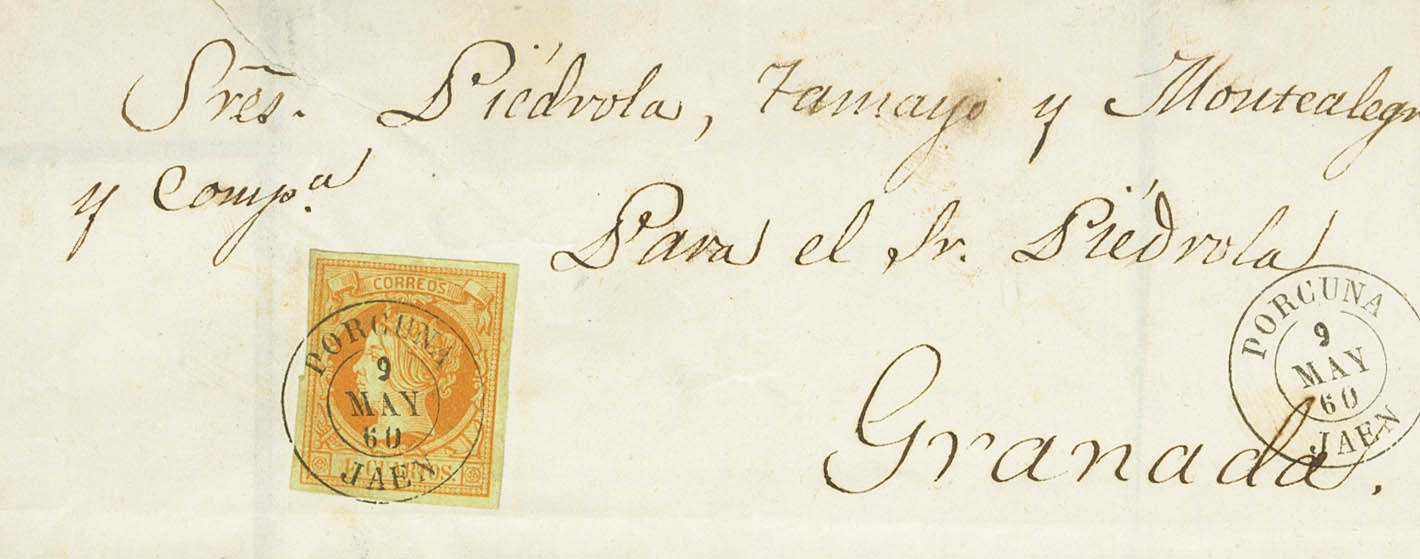 Sres. Piédrola, Tamayo y Montealegr
y Compª.
Para el Sr. Piédrola
Granada.
CORREOS
PORCUNA
9
MAY
60
JAEN
PORCUNA
9
MAY
60
JAEN